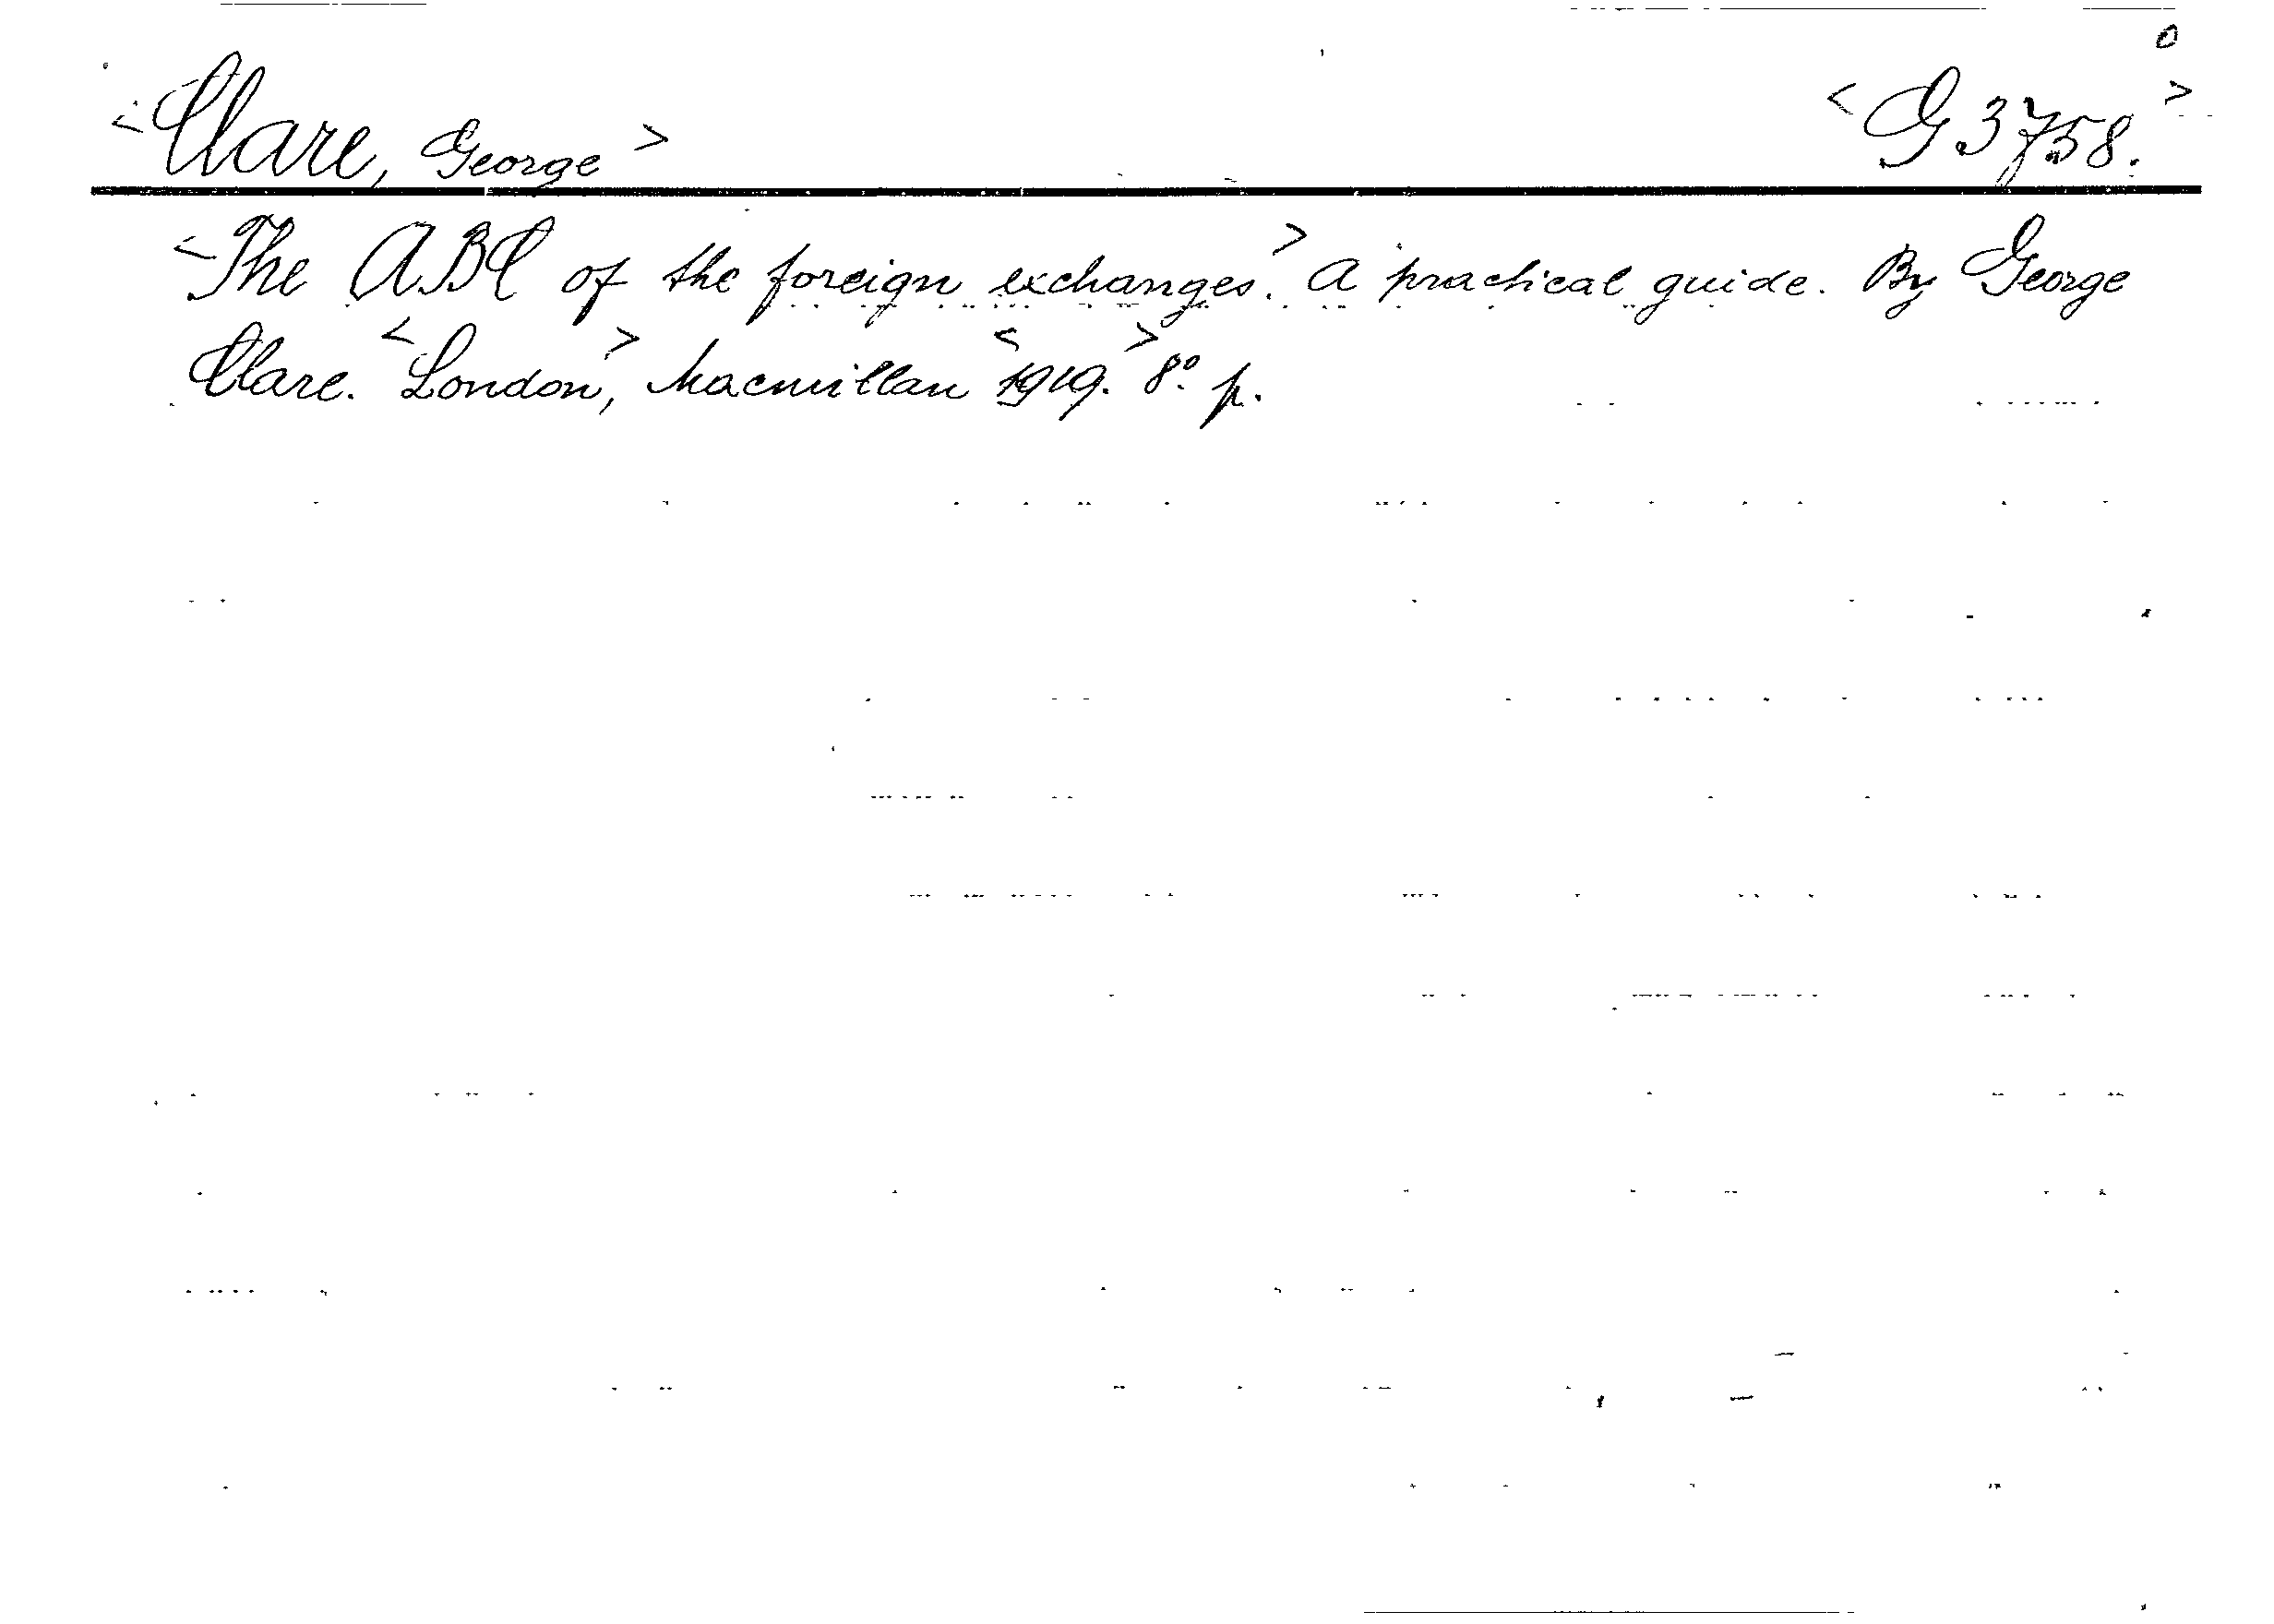 0
<Clare, George> <G 3758.>
<The ABC of the foreign exchanges.> A practical guide. By George
Clare. <London>, Macmillan <1919.> 8º. p.